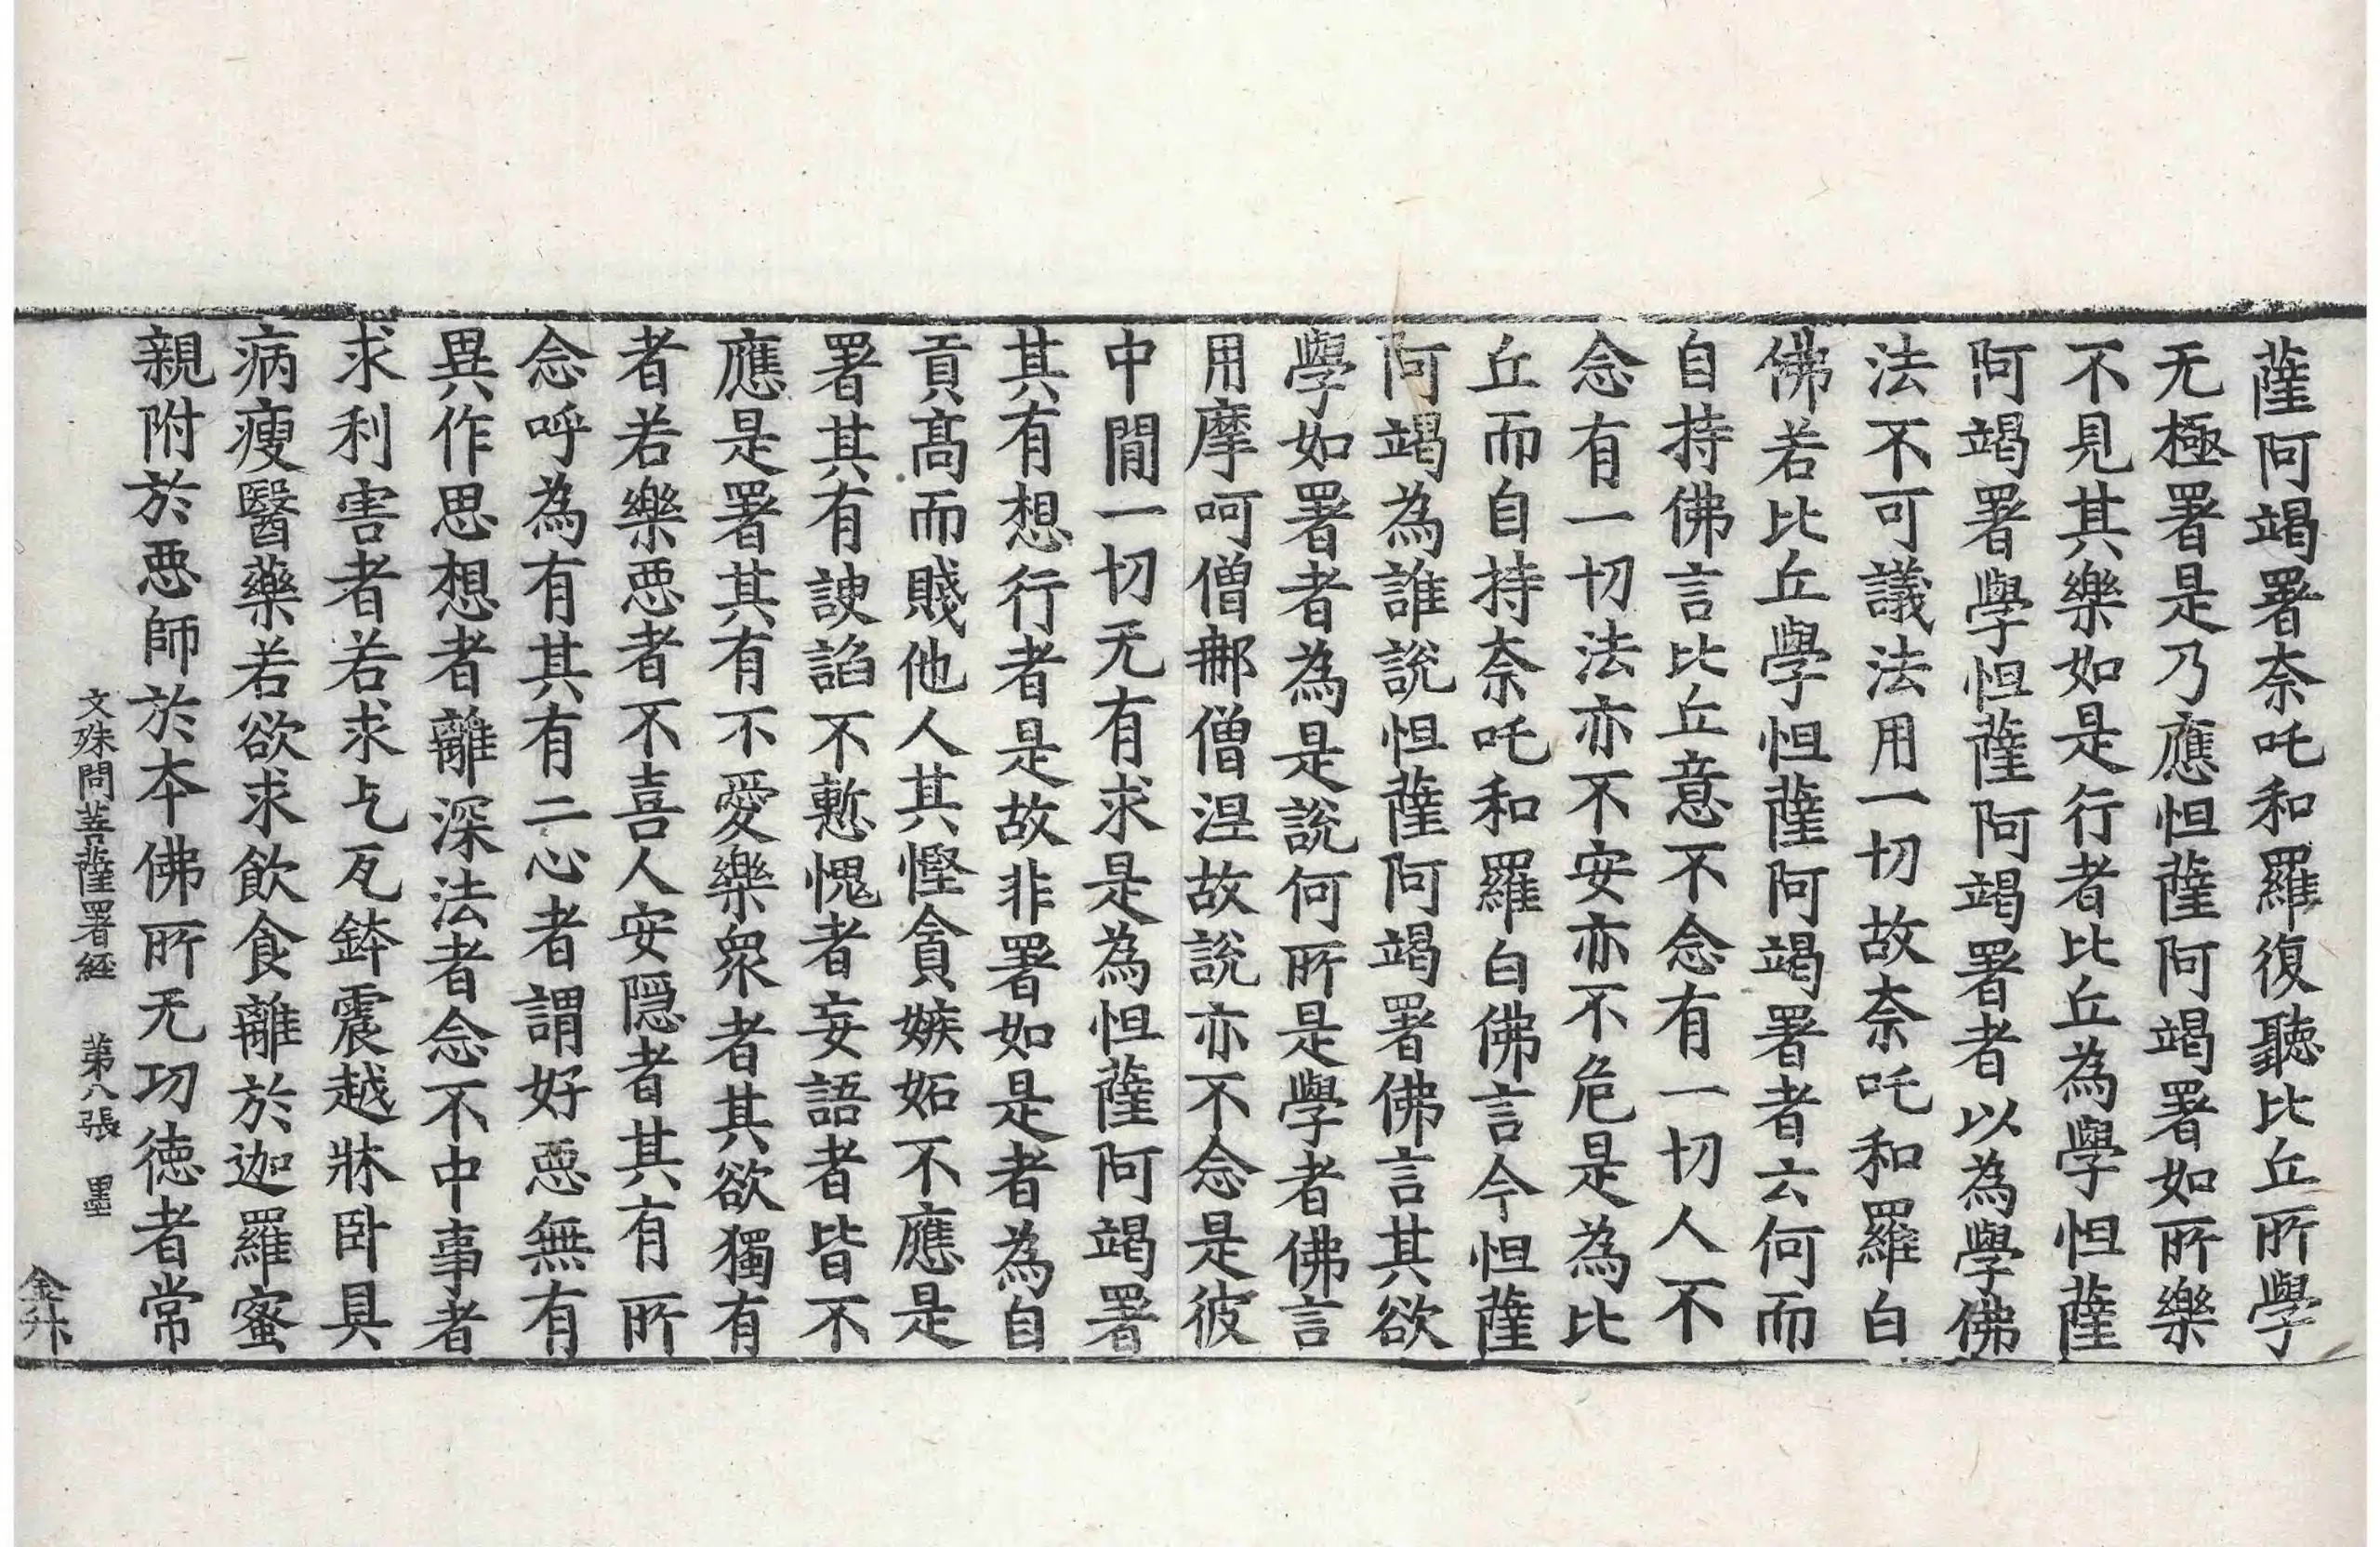 薩阿竭署奈吒和羅復聽比丘所學
无極署是乃應怛薩阿竭署如所樂
不見其樂如是行者比丘為學怛薩
阿竭署學怛薩阿竭署者以為學佛
法不可議法用一切故奈吒和羅白
佛若比丘學怛薩阿竭署者云何而
自持佛言比丘意不念有一切人不
念有一切法亦不安亦不危是為比
丘而自持奈吒和羅白佛言今怛薩
阿竭為誰說怛薩阿竭署佛言其欲
學如署者為是說何所是學者佛言
用摩呵僧𨚗僧涅故說亦不念是彼
中閒一切无有求是為怛薩阿竭署
其有想行者是故非署如是者為自
貢高而賤他人其慳貪嫉妬不應是
署其有諛諂不慙愧者妄語者皆不
應是署其有不愛樂衆者其欲獨有
者若樂惡者不喜人安隱者其有所
念呼為有其有二心者謂好惡無有
異作思想者離深法者念不中事者
求利害者若求乞瓦鉢震越牀臥具
病瘦醫藥若欲求飲食離於迦羅蜜
親附於惡師於本佛所无功徳者常
文殊問菩薩署經 第八張 墨